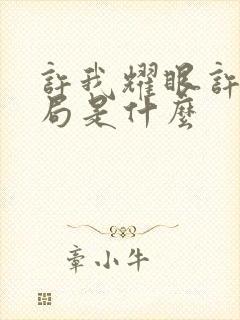 許我耀眼許
局是什麼
章小牛